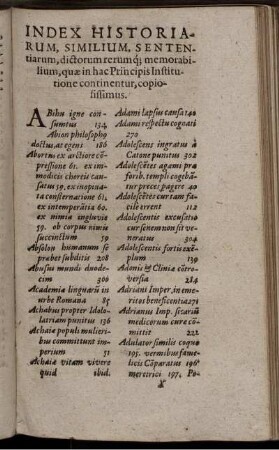 INDEX HISTORIA-
RUM, SIMILIUM, SENTEN-
tiarum, dictorum rerumq; memorabi-
lium, quæ in hac Principis Institu-
tione continentur, copio-
sissimus.
ABihu igne con-
sumtus 134
Abion philosopho
doctus, at egens 186
Abortus ex arctiore cō-
pressione 61. ex im-
modicis choreis cau-
satus 59. ex inopina-
ta consternatione 61,
ex intemperātia 60.
ex nimia ingluvie
59. ob corpus nimis
succinctum 59
Absolon humanum se
præbet subditis 208
Abusus mundi duode-
cim 300
Academia linguarū in
urbe Romana 85
Achabus propter Idolo-
latriam punitus 136
Achaiæ populi mulieri-
bus committunt im-
perium 51
Achaiæ vitam vivere
quid ibid.
Adami lapsus causa 140
Adami respectu cognati
270
Adolescens ingratus à
Catone punitus 302
Adolescētes agami præ
forib. templi cogebā-
tur preces pagere 40
Adolescētes cur tam fa-
cile errent 112
Adolescentis excusatio
cur senem non sit ve-
neratus 304
Adolescentis fortis exē-
plum 139
Adonis & Cliniæ cōtro-
versia 284
Adriani Imper. in eme-
ritos beneficentia 271
Adrianus Imp. se varijs
medicorum curæ cō-
mittit 222
Adulator similis coquo
195. vermibus fame-
licis Cōparatus 196
meretrici 197. Po-
X